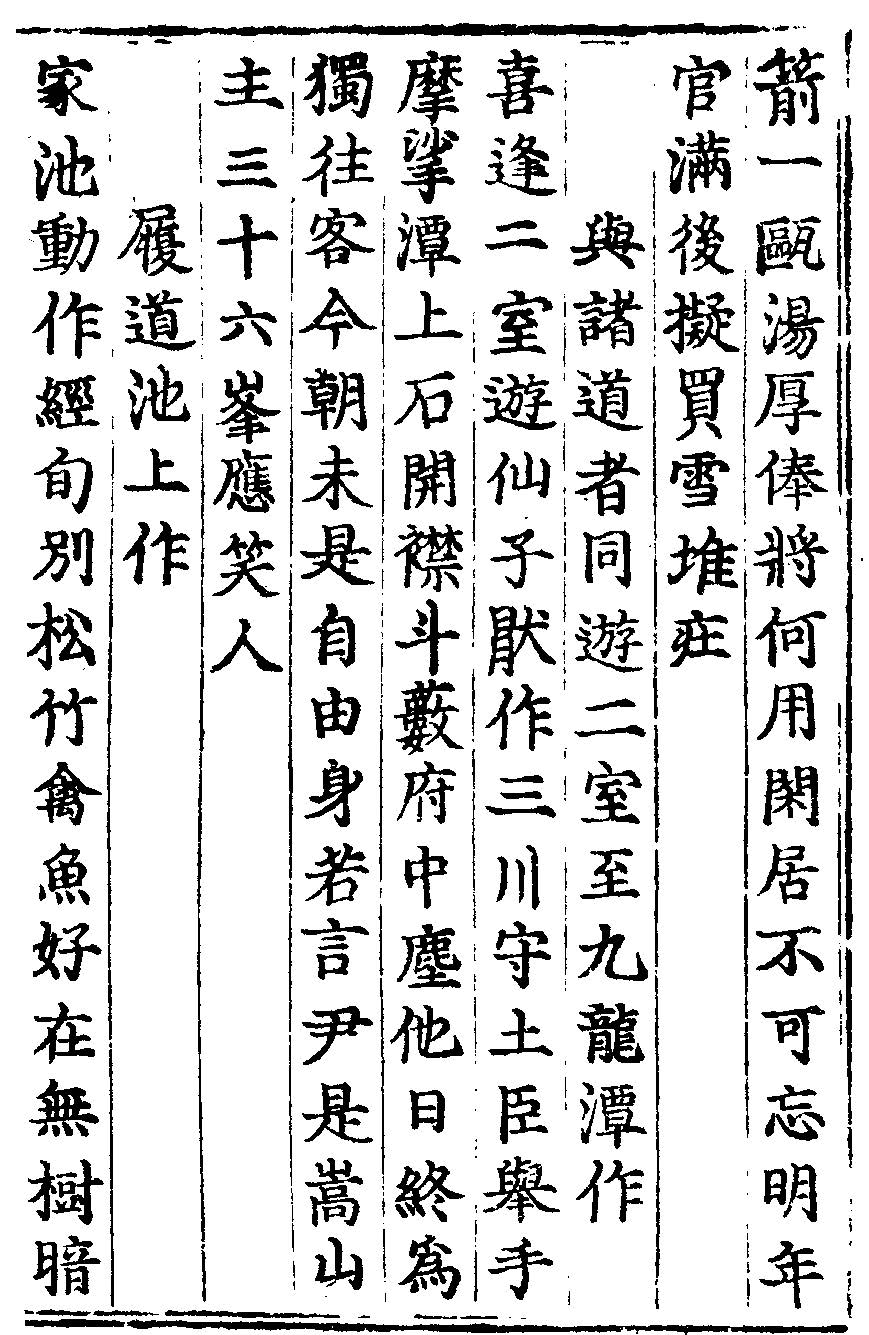 箭一甌湯厚俸將何用閑居不可忘明年
官滿後擬買雪堆庄
與諸道者同遊二室至九龍潭作
喜逢二室遊仙子猒作三川守土臣舉手
摩挲潭上石開襟斗藪府中塵他日終爲
獨往客今朝未是自由身若言尹是嵩山
主三十六峯應笑人
履道池上作
家池動作經旬別松竹禽魚好在無樹暗